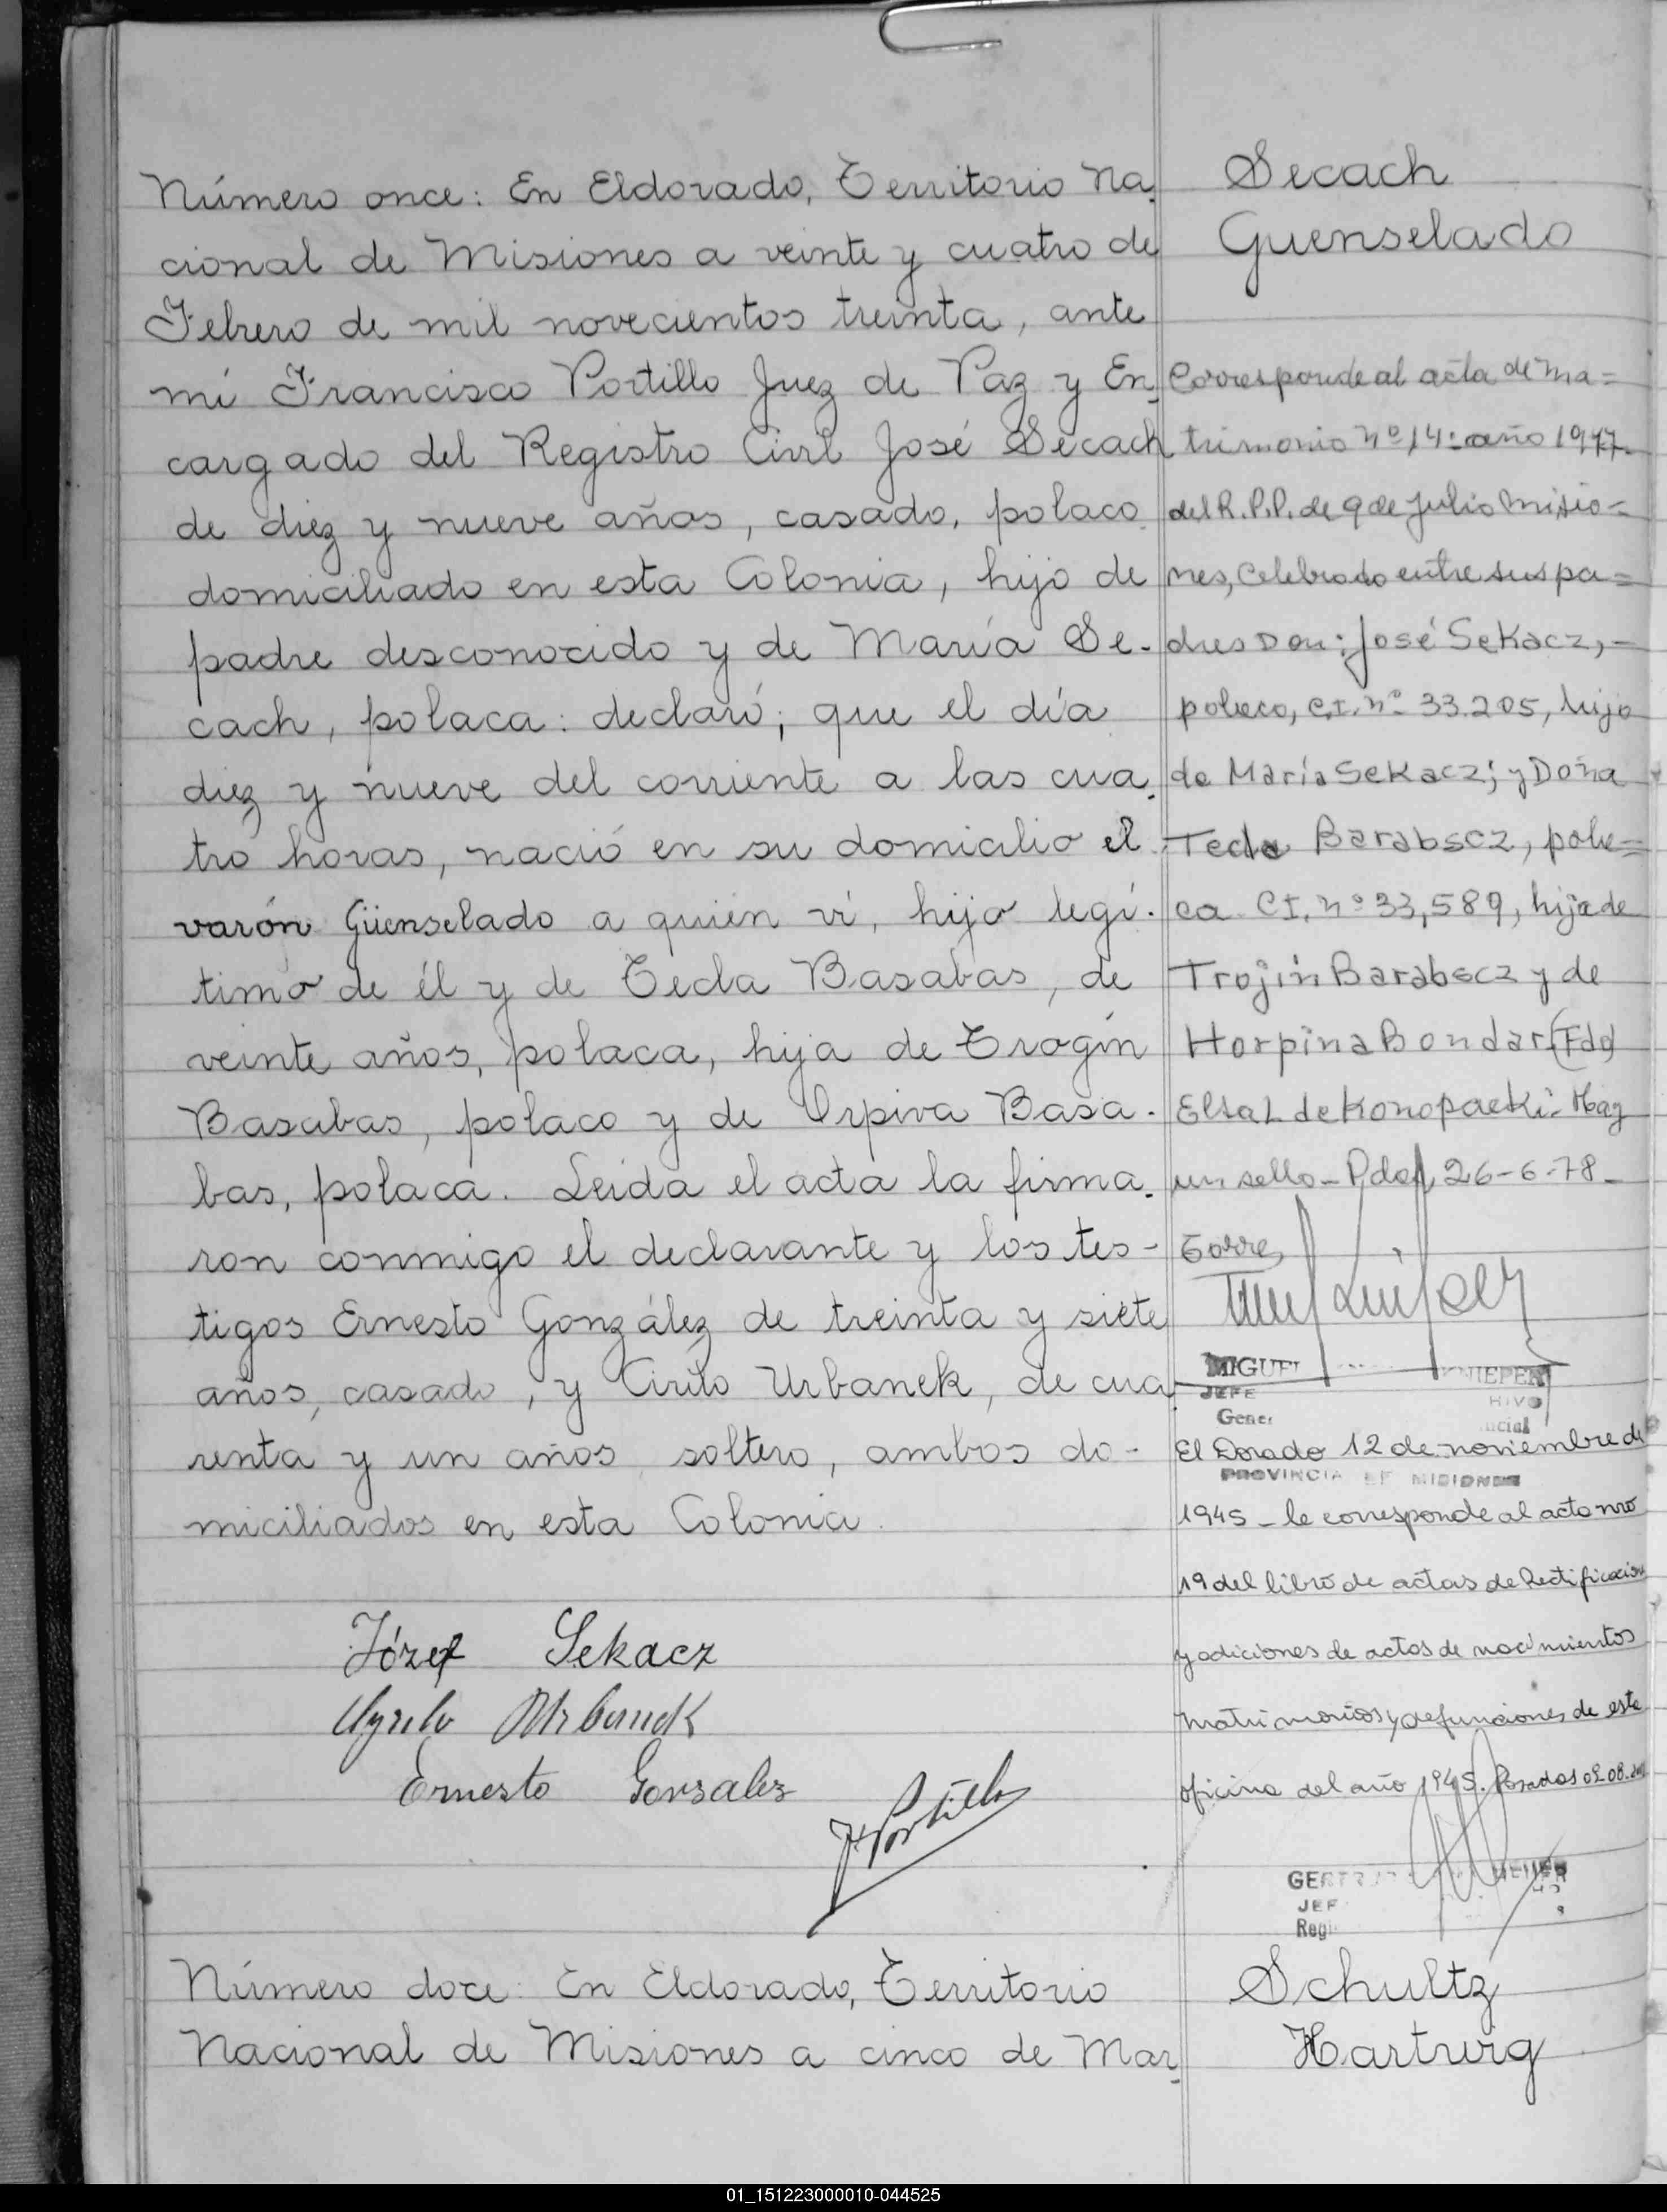 Número once: En Eldorado, Territorio Na-
cional de Misiones a veinte y cuatro de
Febrero de mil novecientos treinta, ante
mí Francisco Portillo Juez de Paz y En-
cargado del Registro Civil José Secach
de diez y nueve años, casado, polaco
domiciliado en esta Colonia, hijo de
padre desconocido y de María Se-
cach, polaca: declaró; que el día
diez y nueve del corriente a las cua-
tro horas, nació en su domicilio el
varón Güenselado a quien ví, hijo legí-
timo de él y de Tecla Basabas, de
veinte años, polaca, hija de Trogín
Basabas, polaco y de Orpiva Basa-
bas, polaca. Leida el acta la firma-
ron conmigo el declarante y los tes-
tigos Ernesto González de treinta y siete
años, casado, y Cirilo Urbanek, de cua-
renta y un años soltero, ambos do-
miciliados en esta Colonia.
Józef Sekacz
Cyrilo Urbanek
Ernesto Gonzalez
F Portillo
Secach
Guenselado
Corresponde al acta de Ma=
trimonio nº 14: año 1977
del R.P.P. de 9 de Julio Misio=
nes, Celebrado entre sus pa=
dres Don: José Sekacz,-
polaco, C.I. nº 33.205, hijo
de María Sekacz; y Doña
Tecla Barabscz, pola=
ca C.I. nº 33,589, hija de
Trojin Barabscz y de
Horpina Bondar (Fdo)
Elsa L de Konopacki- Hay
un sello - Pdas, 26-6-78-
Torre
MIGUEL KNIEPER
JEFE
PROVINCIA DE MISIONES
El Dorado 12 de noviembre de
1945 - le corresponde al acta nro
19 del libro de actas de Rectificacion
y adiciones de actas de nacimientos
matrimonios y defunciones de este
oficina del año 1945. Posadas 02.08.
JEF
Número doce: En Eldorado, Territorio
Nacional de Misiones a cinco de Mar-
Schultz
Hartwig
01_151223000010-044525